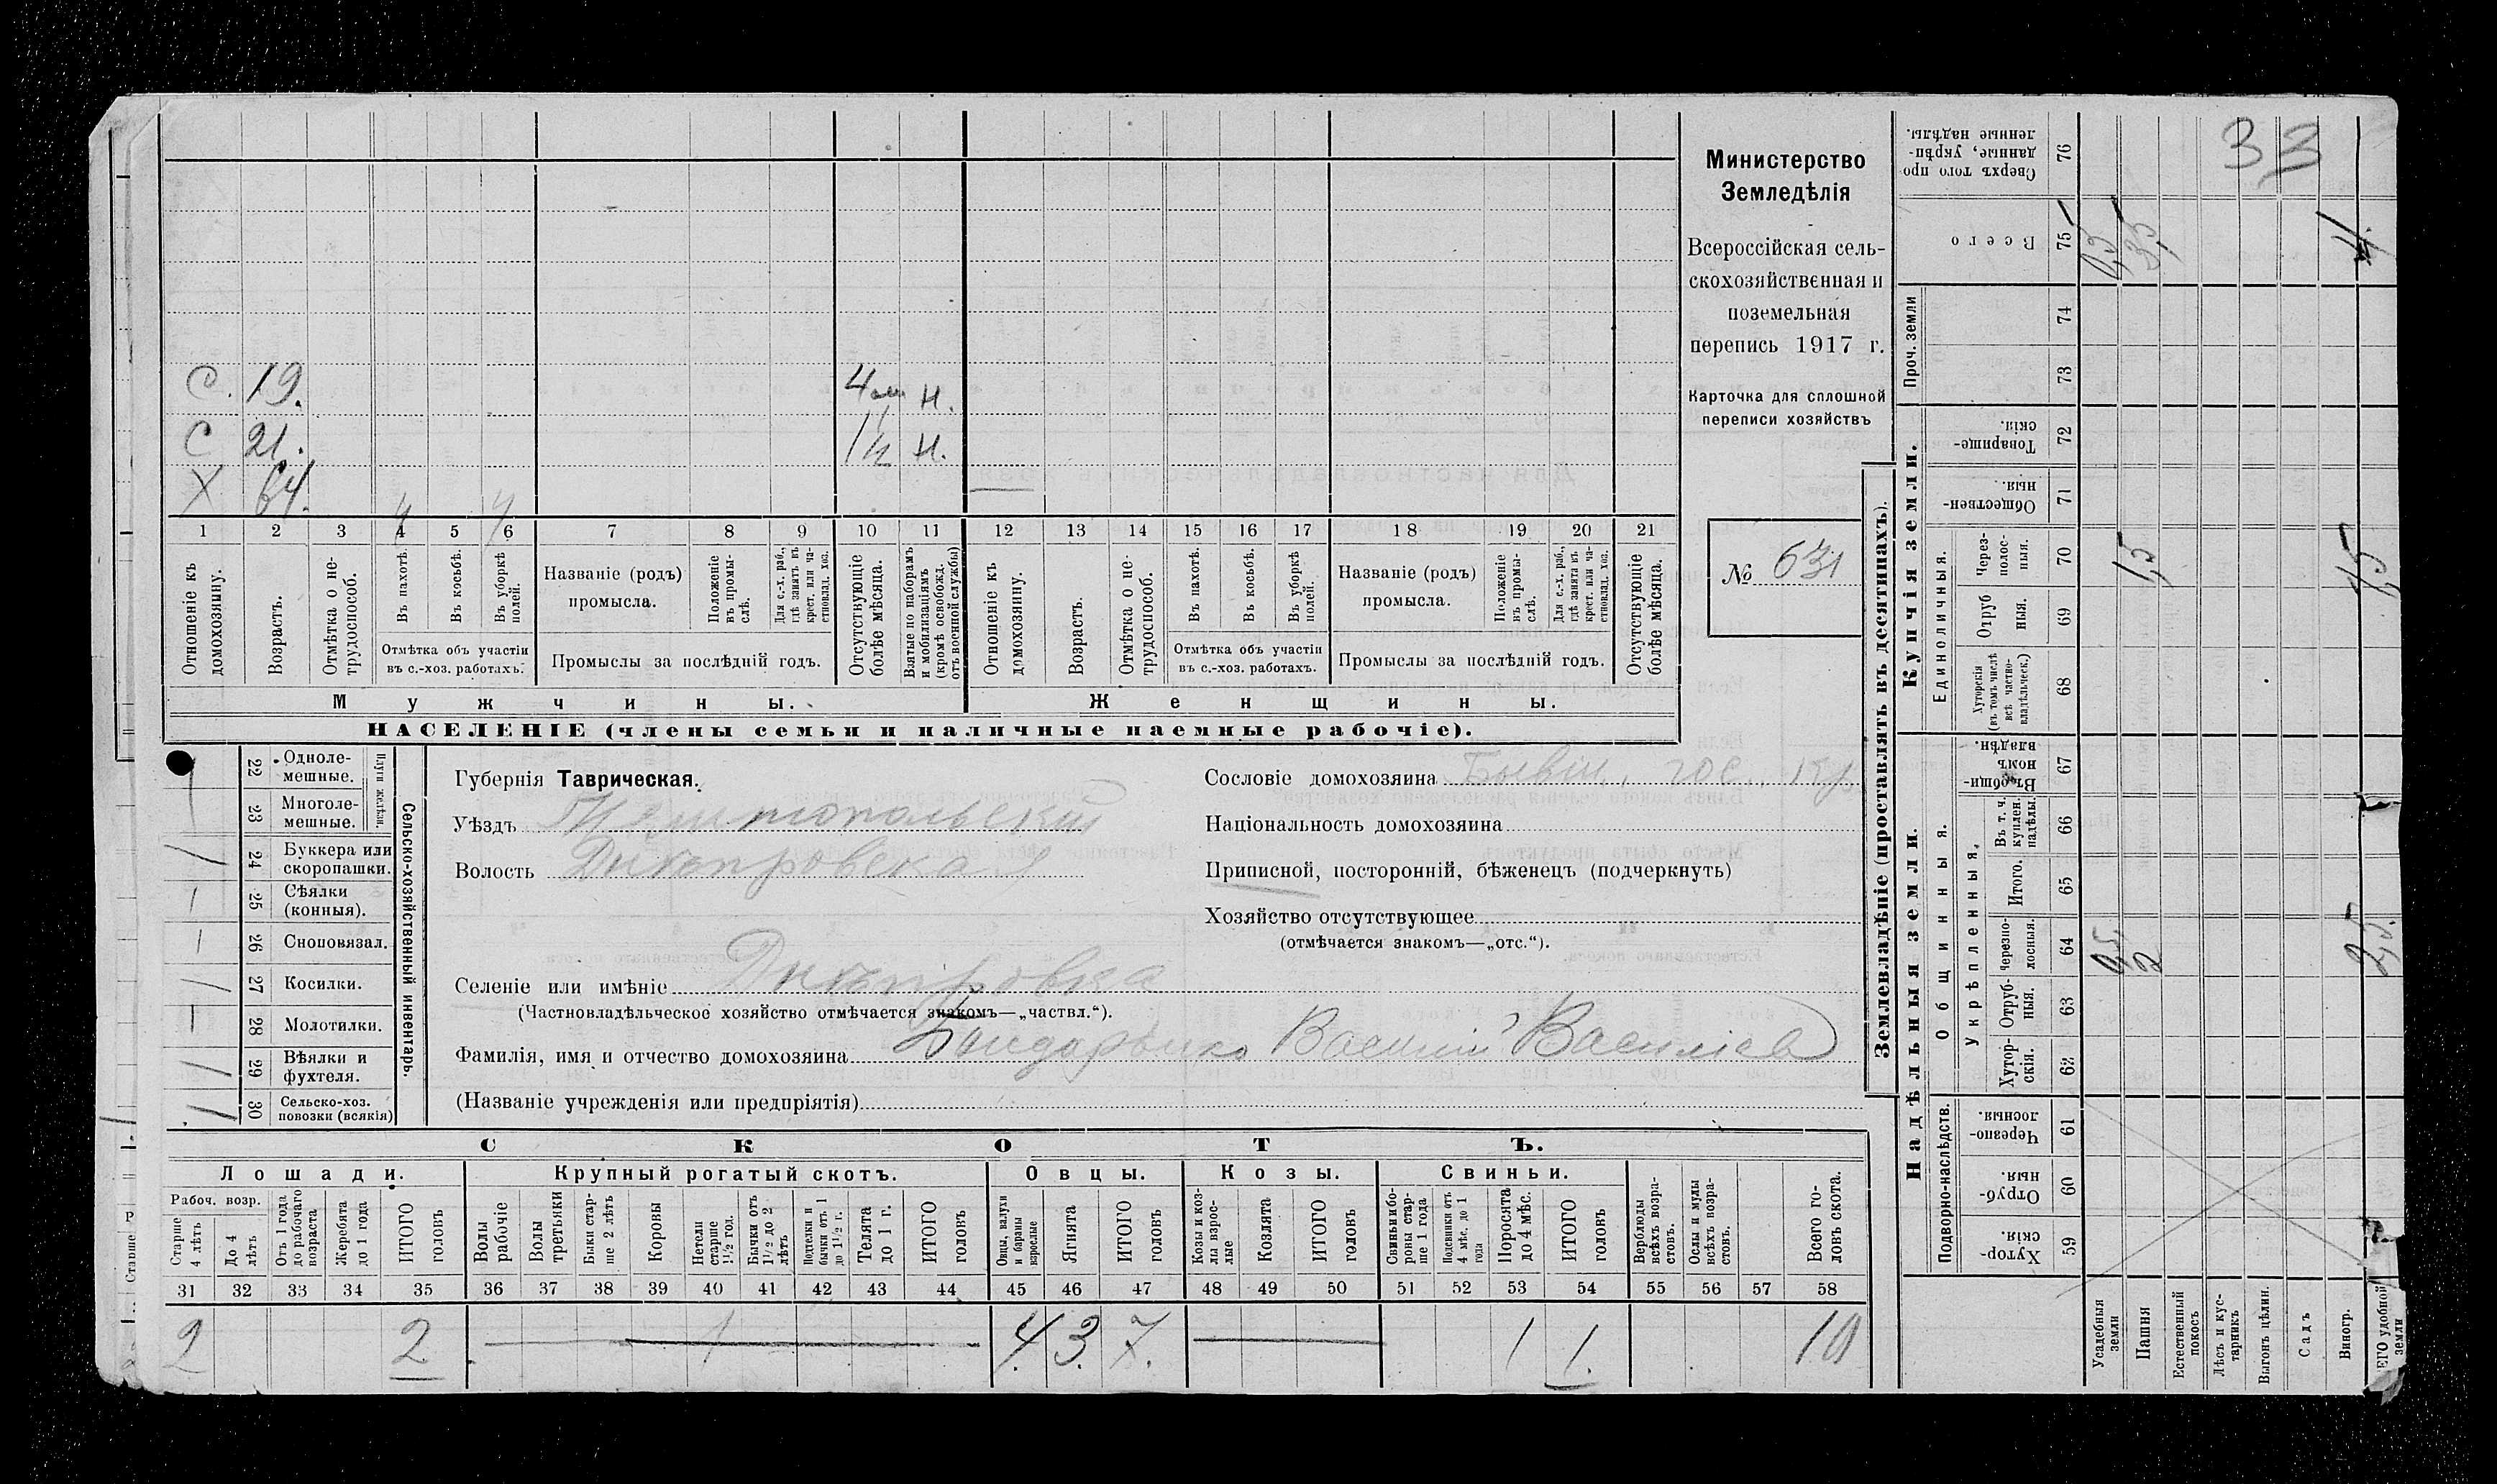 Министерство
Земледѣлія
Всероссійская сель-
скохозяйственная и
поземельная
перепись 1917 г.
Карточка для сплошной
переписи хозяйствъ
№ 631
С. 19. 4 м. Н.
С 21. 1½ Н.
Х 64. ч ч —
1 2 3 4 5 6 7 8 9 10 11 12 13 14 15 16 17 18 19 20 21
Отношеніе къ домохозяину.
Возрастъ.
Отмѣтка о не-
трудоспособ.
Въ пахотѣ.
Въ косьбѣ.
Въ уборкѣ полей.
Отмѣтка объ участіи
въ с.-хоз. работахъ.
Названіе (родъ)
промысла.
Положеніе въ промы-
слѣ.
Для с.-х. раб.,
гдѣ занятъ въ
крест. или ча-
стновлад. хоз.
Промыслы за послѣдній годъ.
Отсутствующіе болѣе мѣсяца.
Взятые по наборамъ
и мобилизаціямъ
(кромѣ освобожд.
отъ военной службы)
Отношеніе къ домохозяину.
Возрастъ.
Отмѣтка о не-
трудоспособ.
Въ пахотѣ.
Въ косьбѣ.
Въ уборкѣ полей.
Отмѣтка объ участіи
въ с.-хоз. работахъ.
Названіе (родъ)
промысла.
Положеніе въ промы-
слѣ.
Для с.-х. раб.,
гдѣ занята въ
крест. или ча-
стновлад. хоз.
Промыслы за послѣдній годъ.
Отсутствующіе болѣе мѣсяца.
Мужчины.
Женщины.
НАСЕЛЕНІЕ (члены семьи и наличные наемные рабочіе).
Сельско-хозяйственный инвентарь.
Плуги желѣзн.
22 Одноле-
мешные.
23 Многоле-
мешные.
24 Буккера или
скоропашки.
25 Сѣялки
(конныя).
26 Сноповязал.
27 Косилки.
28 Молотилки.
29 Вѣялки и
фухтеля.
30 Сельско-хоз.
повозки (всякія)
Губернія Таврическая.
Уѣздъ Мелитопольскій
Волость Днѣпровская
Селеніе или имѣніе Днѣпровка
(Частновладѣльческое хозяйство отмѣчается знакомъ—„частвл.“).
Фамилія, имя и отчество домохозяина Бондаренко Василій Васильев
(Названіе учрежденія или предпріятія)
Сословіе домохозяина Бывш. гос. кр
Національность домохозяина
Приписной, посторонній, бѣженецъ (подчеркнуть)
Хозяйство отсутствующее
(отмѣчается знакомъ—„отс.“).
СКОТЪ.
Лошади.
Крупный рогатый скотъ.
Овцы.
Козы.
Свиньи.
Рабоч. возр.
Старше 4 лѣтъ
До 4 лѣтъ
Отъ 1 года
до рабочаго
возраста
Жеребята до 1 года
ИТОГО головъ
Волы рабочіе
Волы третьяки
Быки стар-
ше 2 лѣтъ
Коровы
Нетели старше 1½ год.
Бычки отъ 1½ до 2 лѣтъ
Подтелки и бычки отъ 1 до 1½ г.
Телята до 1 г.
ИТОГО головъ
Овцы, валухи и бараны взрослые
Ягнята
ИТОГО головъ
Козы и коз-
лы взрос-
лые
Козлята
ИТОГО головъ
Свиньи бо-
ровы стар-
ше 1 года
Подсвинки отъ 4 мѣс. до 1 года
Поросята до 4 мѣс.
ИТОГО головъ
Верблюды всѣхъ возра-
стовъ.
Ослы и мулы всѣхъ возра-
стовъ.
Всего го-
ловъ скота.
31 32 33 34 35 36 37 38 39 40 41 42 43 44 45 46 47 48 49 50 51 52 53 54 55 56 57 58
2 2 4. 3. 7. 1 1. 10
Землевладѣніе (проставлять въ десятинахъ).
Купчія земли.
Надѣльныя земли.
Сверхъ того про
данные, укрѣп-
ленные надѣлы.
76
Всего
75
Проч. земли
74
73
Товарище-
скія.
72
Обществен-
ныя.
71
Единоличныя.
Через-
полос-
ныя.
70
Отруб
ныя.
69
Хуторскія
(въ томъ числѣ
всѣ частно-
владѣльческ.)
68
Общинныя.
Въ общин-
номъ
владѣн.
67
Укрѣпленныя.
Въ т. ч.
куплен.
надѣлы.
66
Итого.
65
Черезпо-
лосныя.
64
Отруб-
ныя.
63
Хутор-
скія.
62
Подворно-наслѣдств.
Черезпо-
лосныя.
61
Отруб-
ныя.
60
Хутор-
скія.
59
Усадебныя земли
Пашня
Естественный покосъ
Лѣсъ и кус-
тарникъ
Выгонъ цѣлин.
Садъ
Виногр.
ЕГО удобной земли
33
0,5 3,5 4.
1,5 1,5
0,5. 2 2,5.